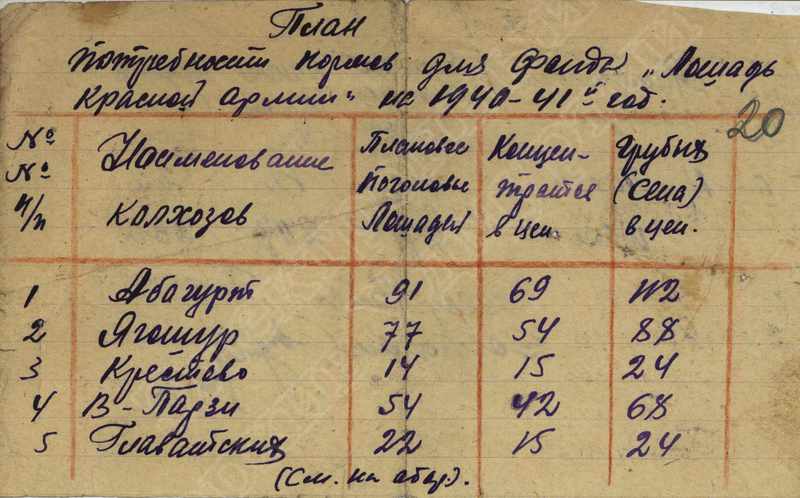 План
потребности кормов для фонда „Лошадь
Красной армии" на 1940-41 й год.
20
№ № п/п Наименование колхозов Плановое поголовье Лошадей Концентратов в цен. Грубых (Сена) в цен.
1 Абагурт 91 69 112
2 Ягошур 77 54 88
3 Крестево 14 15 24
4 В-Парзи 54 42 68
5 Главатских 22 15 24
(См. на обор.).